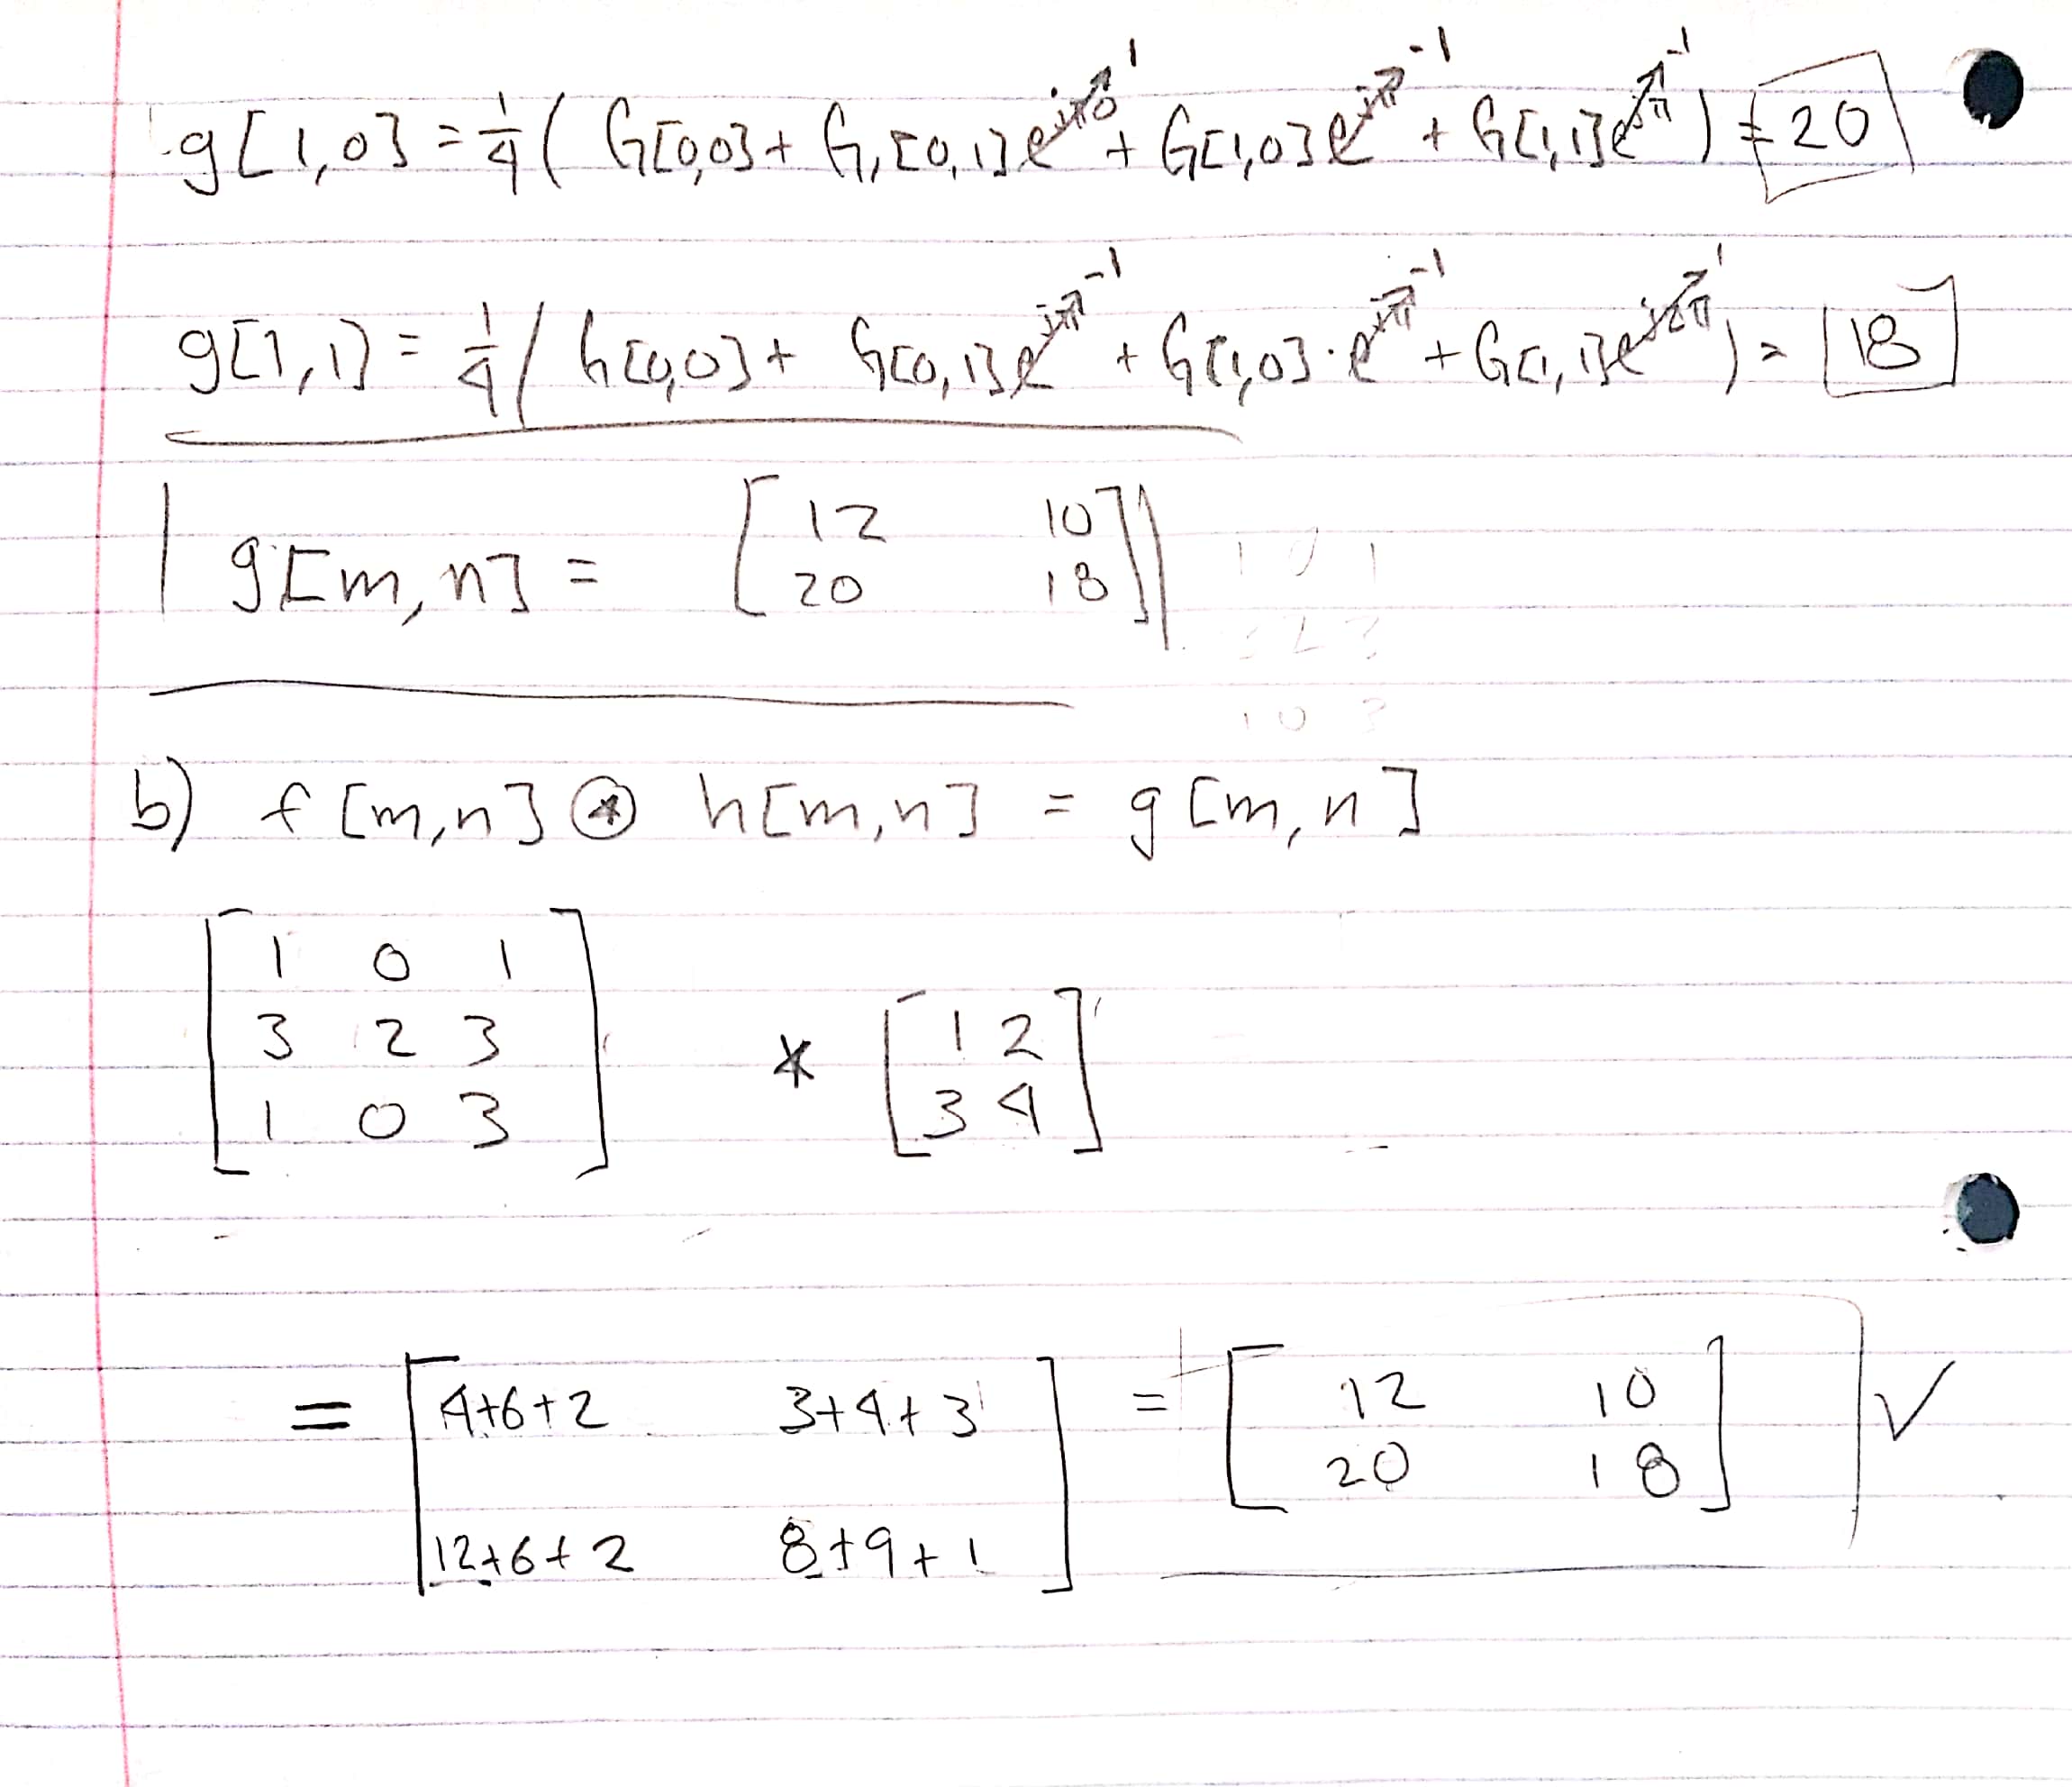 g[1,0] = 1/4 ( G[0,0] + G[0,1] e^{jπ0} 1 + G[1,0] e^{jπ} -1 + G[1,1] e^{jπ} -1 ) = 20
g[1,1] = 1/4 ( G[0,0] + G[0,1] e^{jπ} -1 + G[1,0] · e^{jπ} -1 + G[1,1] e^{j2π} 1 ) = 18
g[m,n] = [ 12 10
20 18 ]
b) f[m,n] ⊛ h[m,n] = g[m,n]
[ 1 0 1
3 2 3
1 0 3 ]
* [ 1 2
3 4 ]
= [ 4+6+2 3+4+3
12+6+2 8+9+1 ]
= [ 12 10
20 18 ] ✓